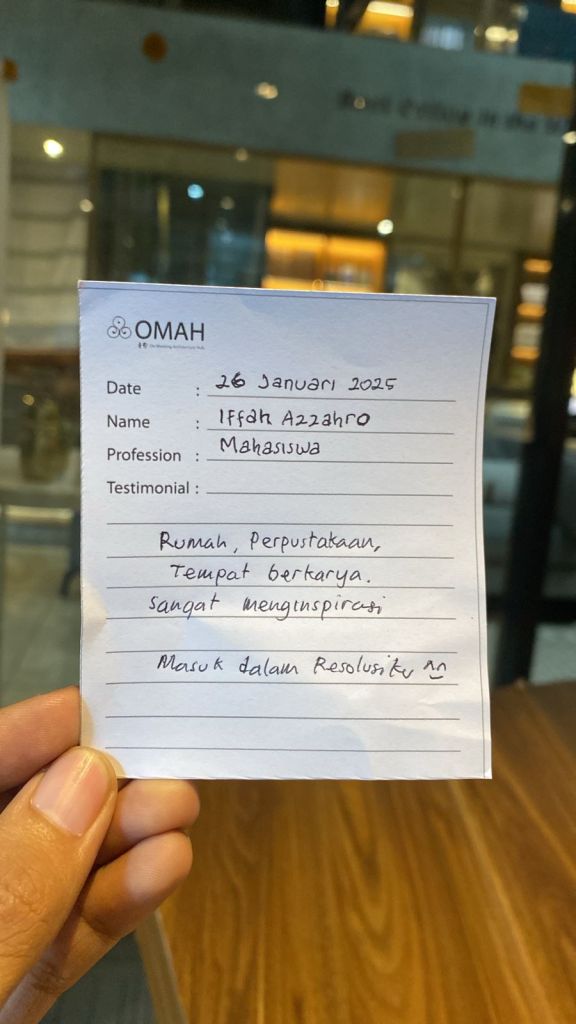 OMAH
Date : 26 Januari 2025
Name : Iffah Azzahro
Profession : Mahasiswa
Testimonial :
Rumah, Perpustakaan,
Tempat berkarya.
Sangat menginspirasi
Masuk dalam Resolusiku